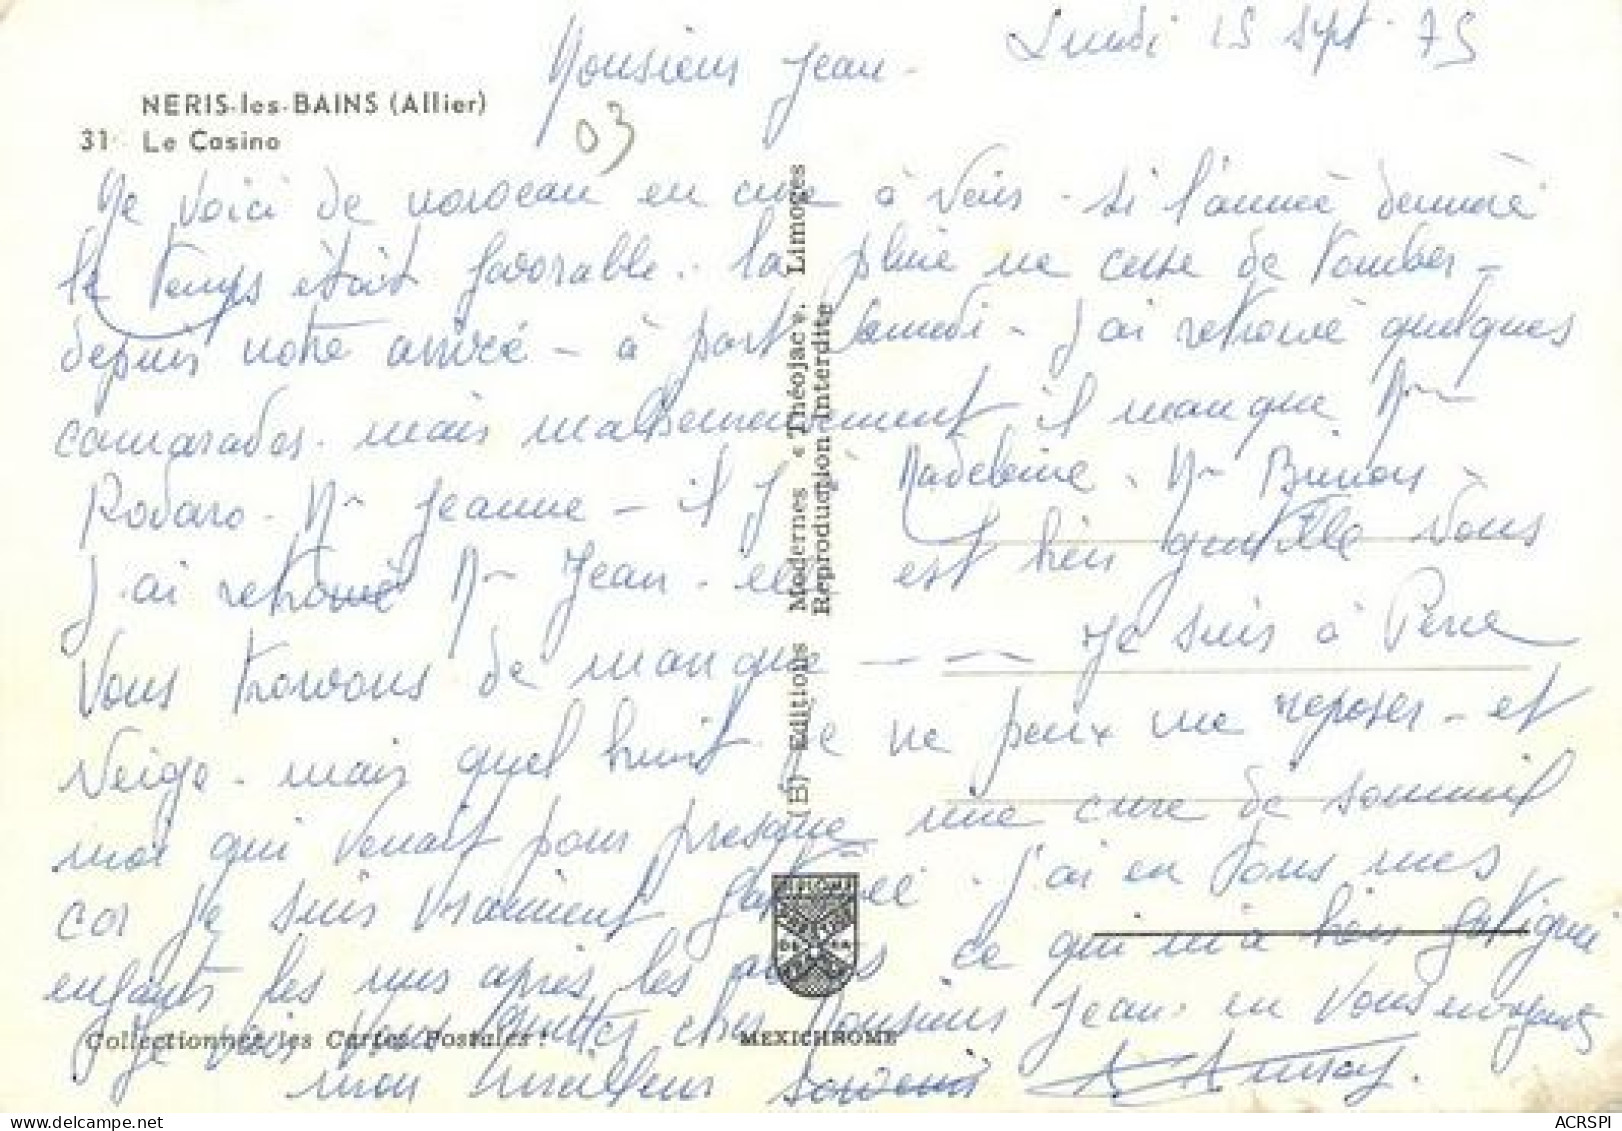 Lundi 15 Sept. 75
Monsieur Jean -
NERIS-les-BAINS (Allier)
31 - Le Casino
03
Me voici de nouveau en cure à Néris - si l'année dernière
le temps était favorable. la pluie ne cesse de tomber -
depuis notre arrivée - à part Samedi - J'ai retrouvé quelques
camarades. mais malheureusement il manque Mr
Rodaro. Mr Jeanne - il y à Madeleine. Mr
J'ai retrouvé Mr Jean - elle est bien gentille Vous
Vous trouvons de manque - - - Je suis à
Neige - mais quel bruit je ne peux me reposer - et
moi qui venait pour presque une cure de sommeil
car je suis vraiment fatiguée. J'ai eu tous mes
enfants les uns après les autres ce qui m'a bien fatigué
Je vais vous quitter cher Monsieur Jean. en vous envoyant
mon meilleur souvenir
(E) Editions Modernes « Théojac ». Limoges
Reproduction Interdite
DIPLOME
DE LA
Collectionnez les Cartes Postales !
MEXICHROME
ACRSPI